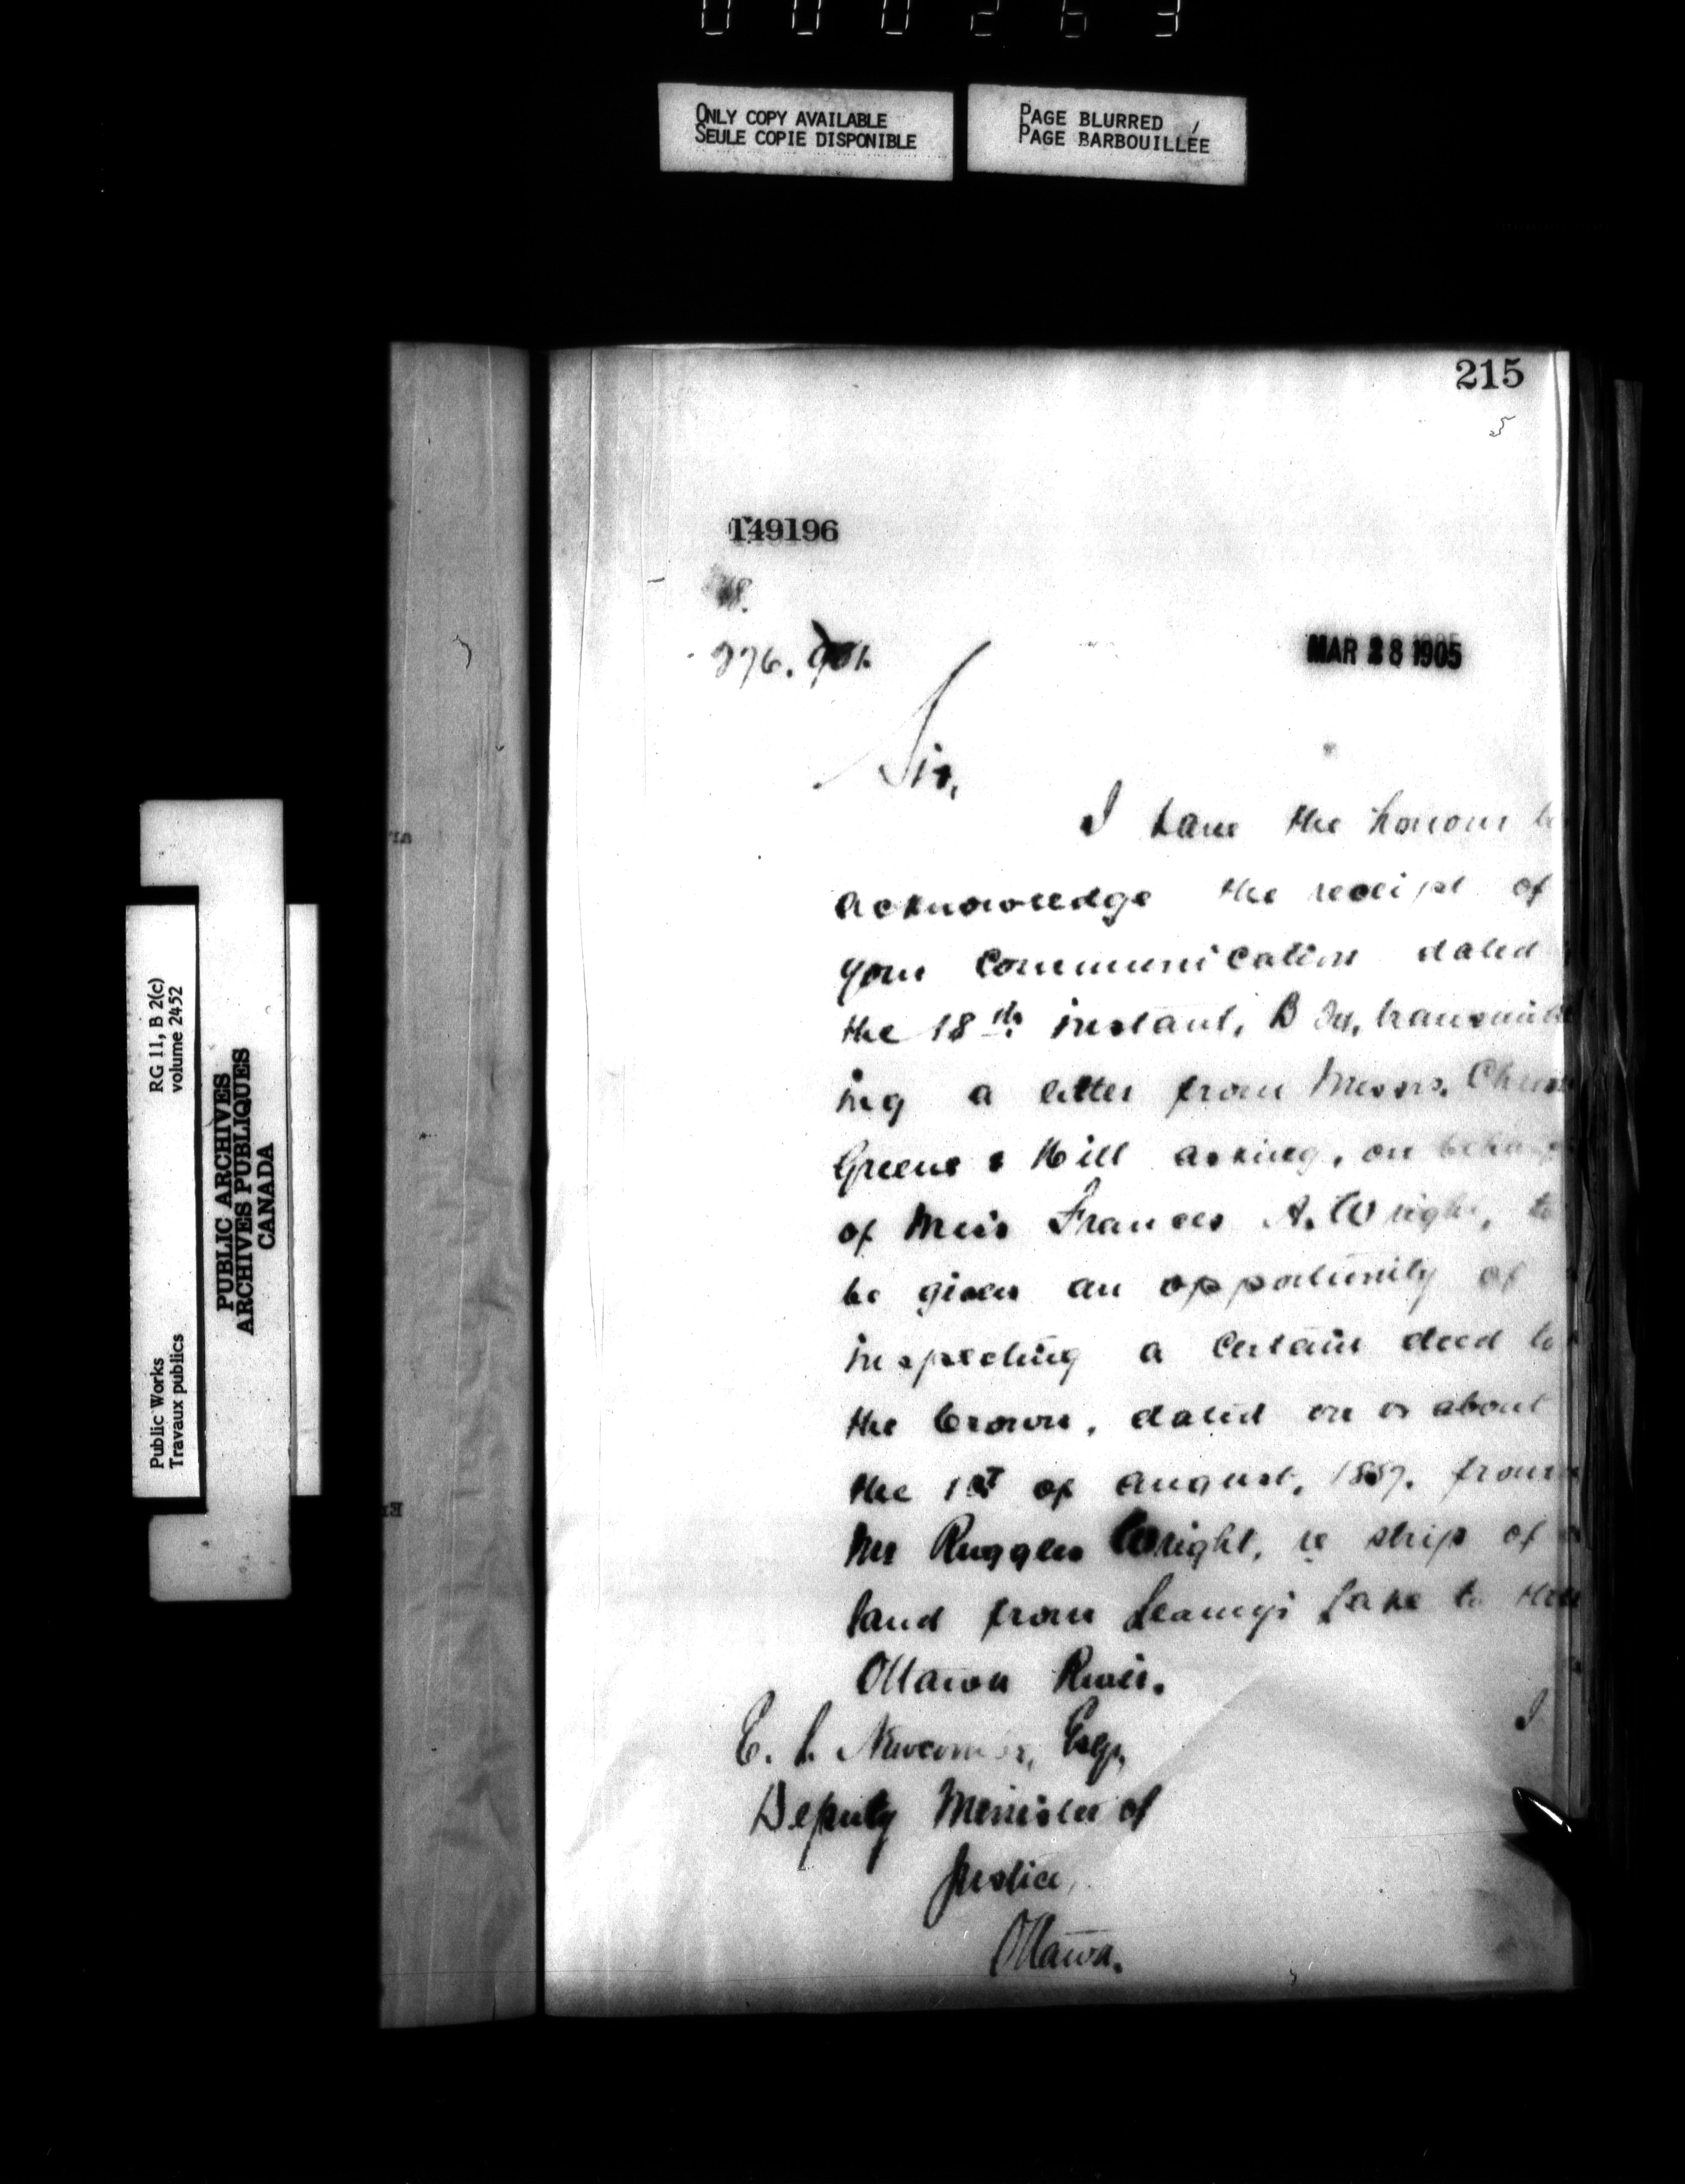 000263
ONLY COPY AVAILABLE
SEULE COPIE DISPONIBLE
PAGE BLURRED
PAGE BARBOUILLÉE
215
149196
MAR 28 1905
Sir,
I have the honour to
acknowledge the receipt of
your communication dated
the 18th instant, transmitt
ing a letter from Messrs.
Greene & Hill asking, on behalf
of Miss Frances A. Wright, to
be given an opportunity of
inspecting a certain deed to
the Crown, dated on or about
the 1st of August, 1857, from
Mr Ruggles Wright, re strip of
land from Leamy's Lake to the
Ottawa River.
I
E. L. Newcombe, Esq.,
Deputy Minister of
Justice,
Ottawa.
RG 11, B 2(c)
volume 2452
PUBLIC ARCHIVES
ARCHIVES PUBLIQUES
CANADA
Public Works
Travaux publics